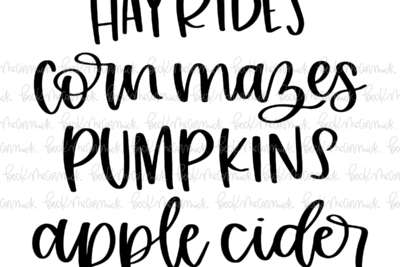 HAYRIDES
corn mazes
PUMPKINS
apple cider